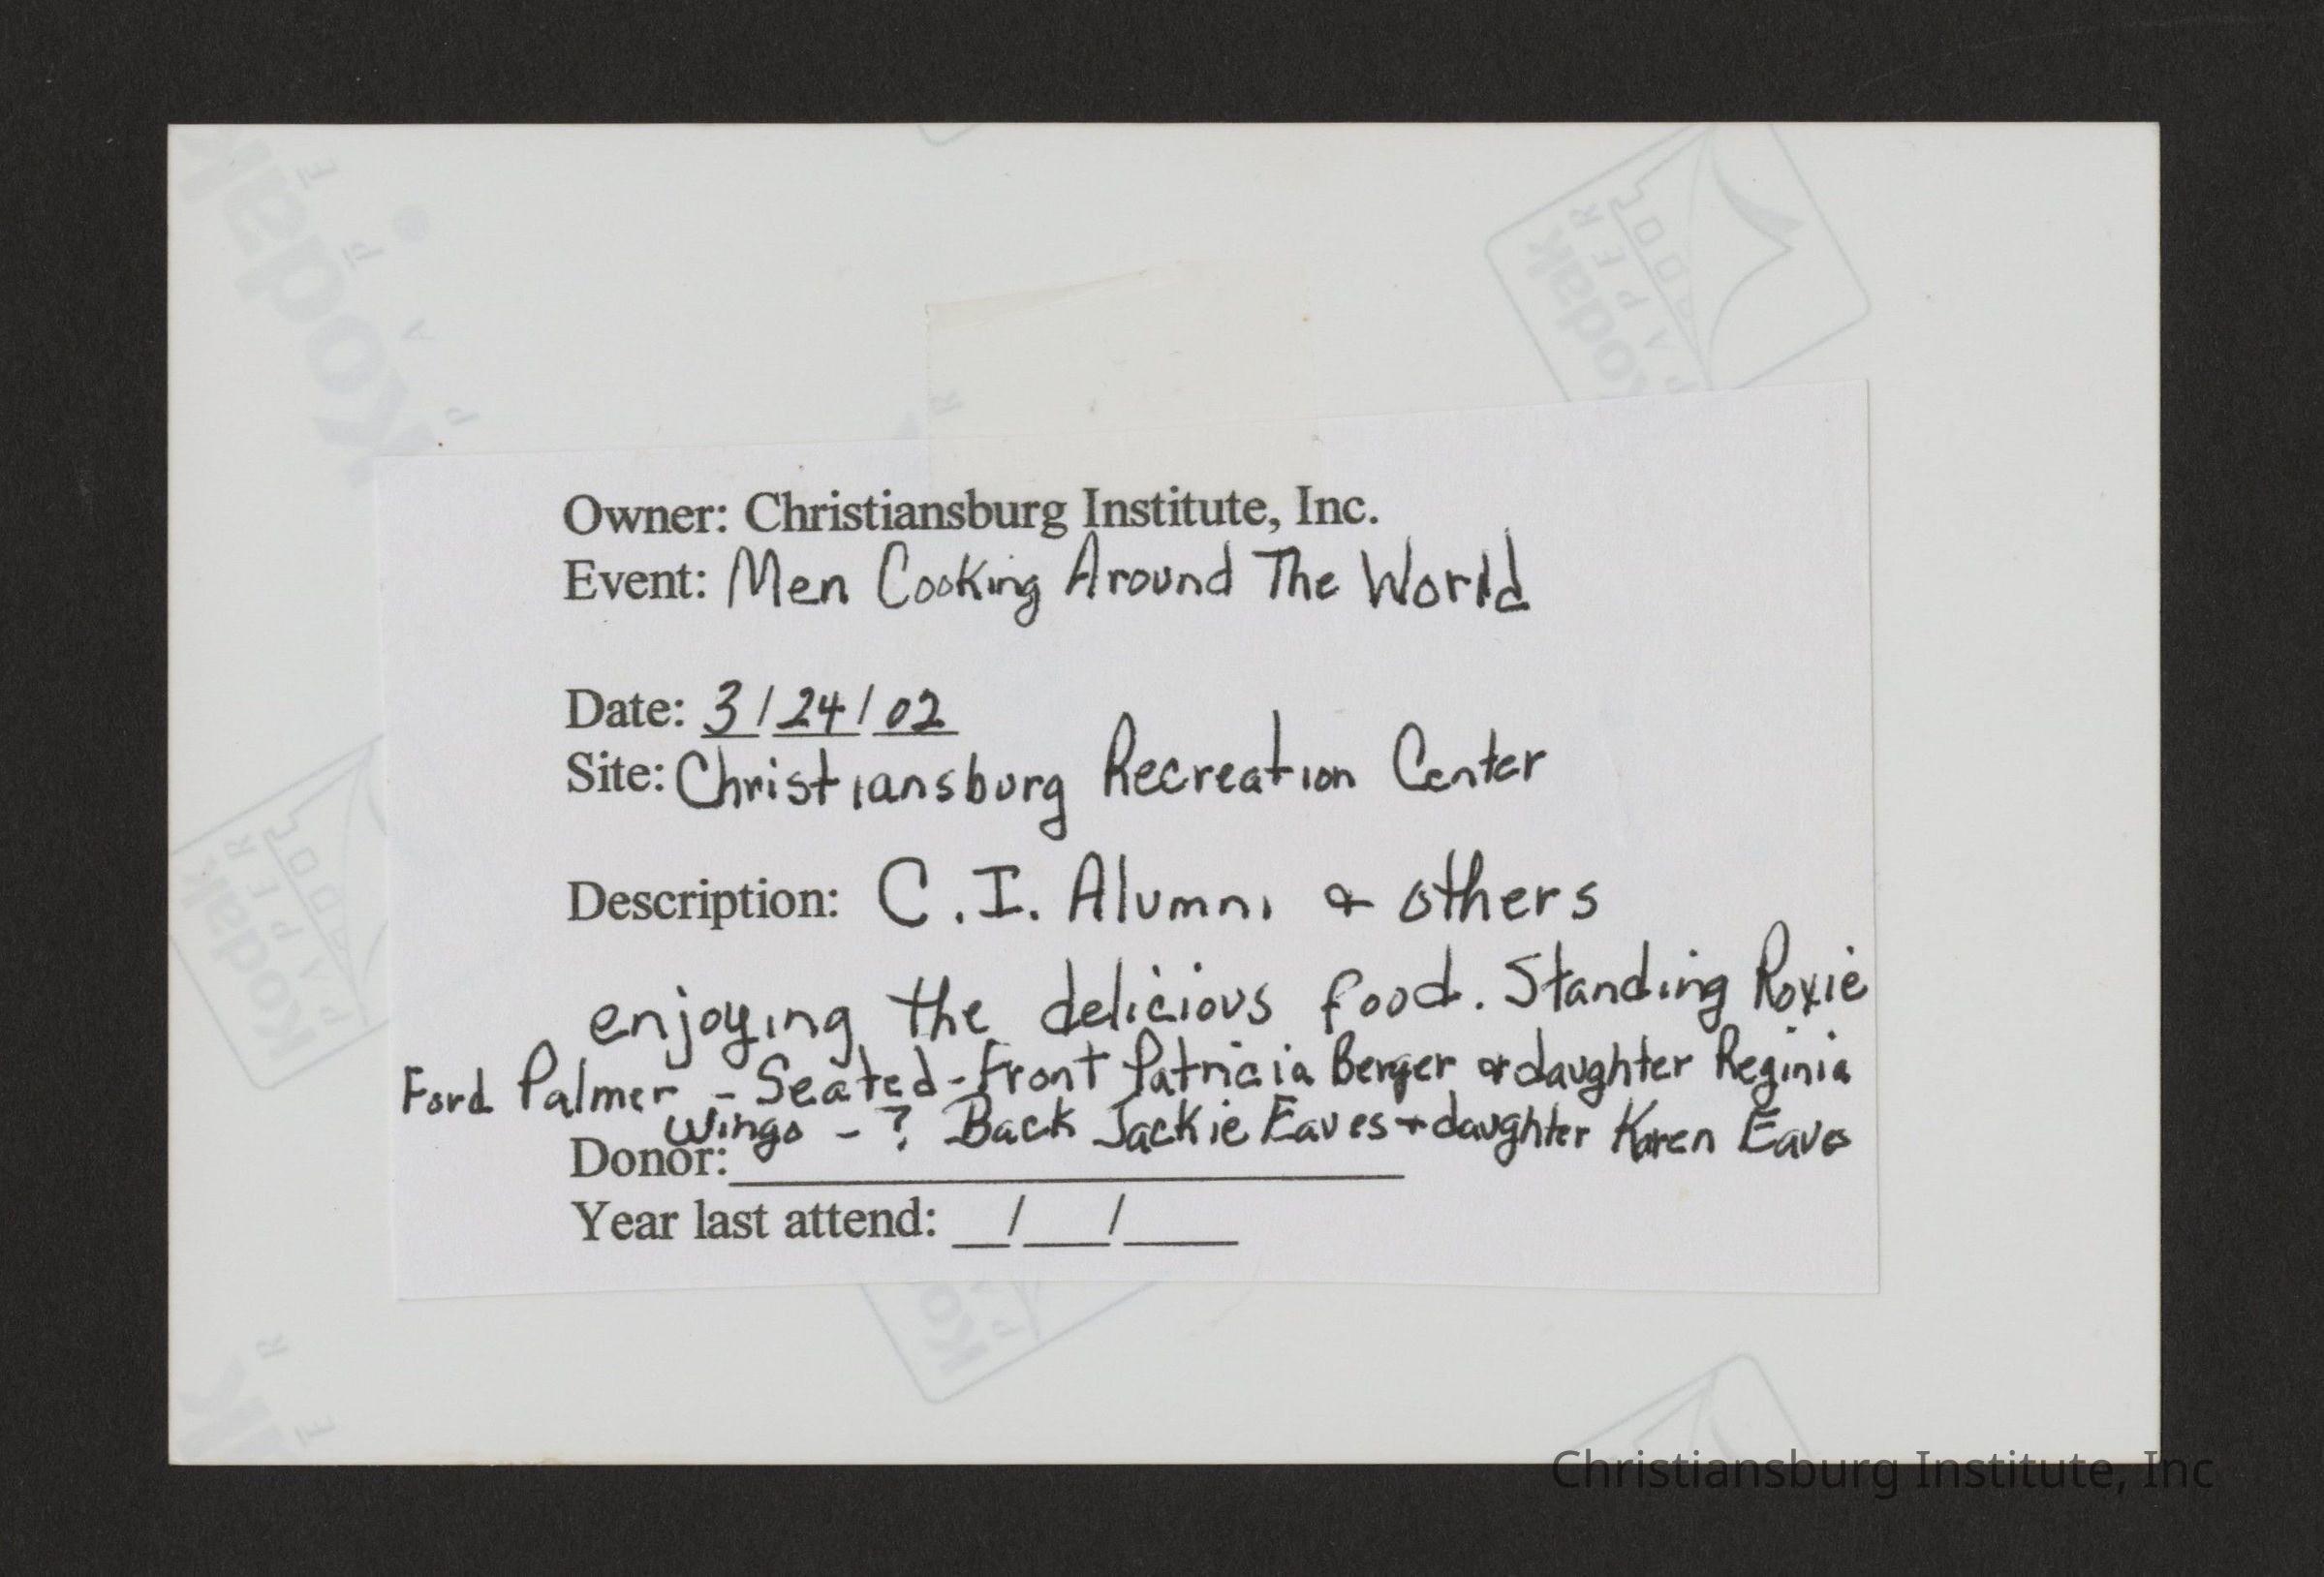 Owner: Christiansburg Institute, Inc.
Event: Men Cooking Around The World
Date: 3/24/02
Site: Christiansburg Recreation Center
Description: C.I. Alumni & others
enjoying the delicious food. Standing Roxie
Ford Palmer - Seated - Front Patricia Berger & daughter Reginia
Wingo - ? Back Jackie Eaves + daughter Karen Eaves
Donor:
Year last attend: __/___/____
Kodak
PAPER
Kodak
PAPER
Kodak
PAPER
Christiansburg Institute, Inc